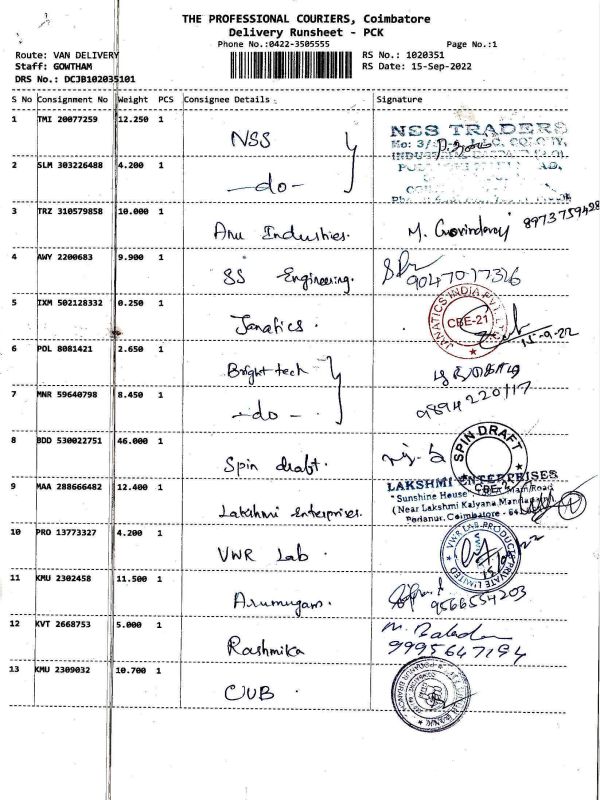 THE PROFESSIONAL COURIERS, Coimbatore
Delivery Runsheet - PCK
Phone No.:0422-3505555 Page No.:1
Route: VAN DELIVERY RS No.: 1020351
Staff: GOWTHAM RS Date: 15-Sep-2022
DRS No.: DCJB102035101
S No Consignment No Weight PCS Consignee Details Signature
1 TMI 20077259 12.250 1 NSS NSS TRADERS
2 SLM 303226488 4.200 1 -do-
3 TRZ 310579858 10.000 1 Anu Industries. M. Govindaraj 8973759428
4 AWY 2200683 9.900 1 SS Engineering. 9047017326
5 IXM 502128332 0.250 1 Janatics. JANATICS INDIA PVT. LTD. CBE-21 15-9-22
6 POL 8081421 2.650 1 Bright tech
7 MNR 59640798 8.450 1 -do- 9894220117
8 BDD 530022751 46.000 1 Spin draft. SPIN DRAFT CBE-
9 MAA 288666482 12.400 1 Lakshmi Enterprises. LAKSHMI ENTERPRISES
"Sunshine House" Main Road
(Near Lakshmi Kalyana Mandapam)
Peelamedu, Coimbatore - 64
10 PRO 13773327 4.200 1 VWR Lab. VWR LAB PRODUCTS PRIVATE LIMITED
11 KMU 2302458 11.500 1 Arumugam. 9566554203
12 KVT 2668753 5.000 1 Rashmika 9995647194
13 KMU 2309032 10.700 1 CUB.